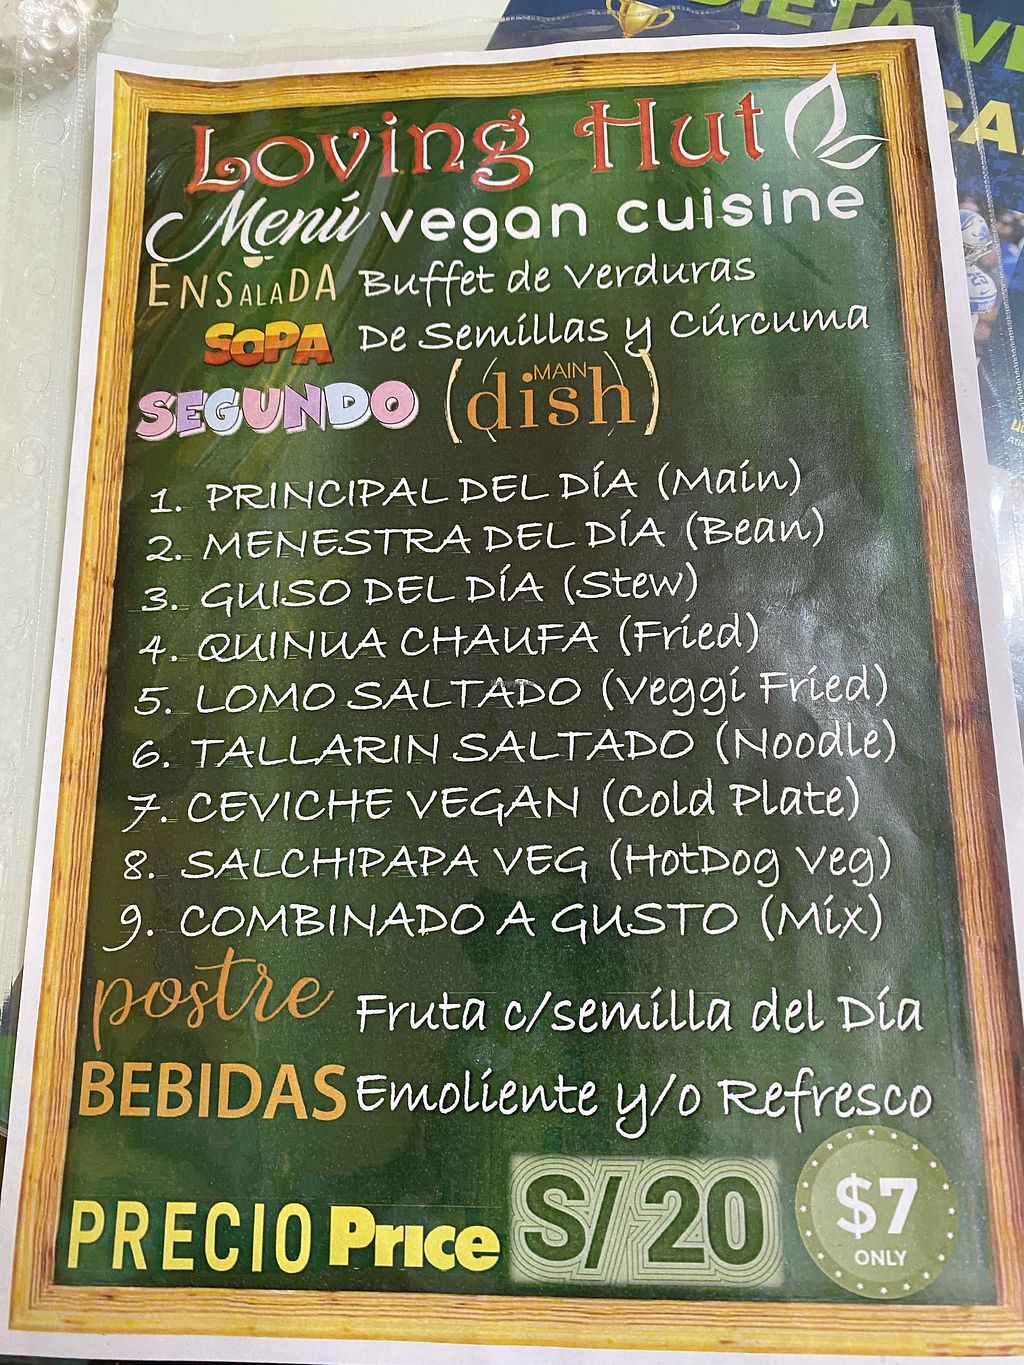 Loving Hut
Menú vegan cuisine
ENSALADA Buffet de Verduras
SOPA De Semillas y Cúrcuma
SEGUNDO (MAIN dish)
1. PRINCIPAL DEL DÍA (Main)
2. MENESTRA DEL DÍA (Bean)
3. GUISO DEL DÍA (Stew)
4. QUINUA CHAUFA (Fried)
5. LOMO SALTADO (Veggi Fried)
6. TALLARIN SALTADO (Noodle)
7. CEVICHE VEGAN (Cold Plate)
8. SALCHIPAPA VEG (HotDog Veg)
9. COMBINADO A GUSTO (Mix)
postre Fruta c/semilla del Día
BEBIDAS Emoliente y/o Refresco
PRECIO Price S/20 $7
ONLY